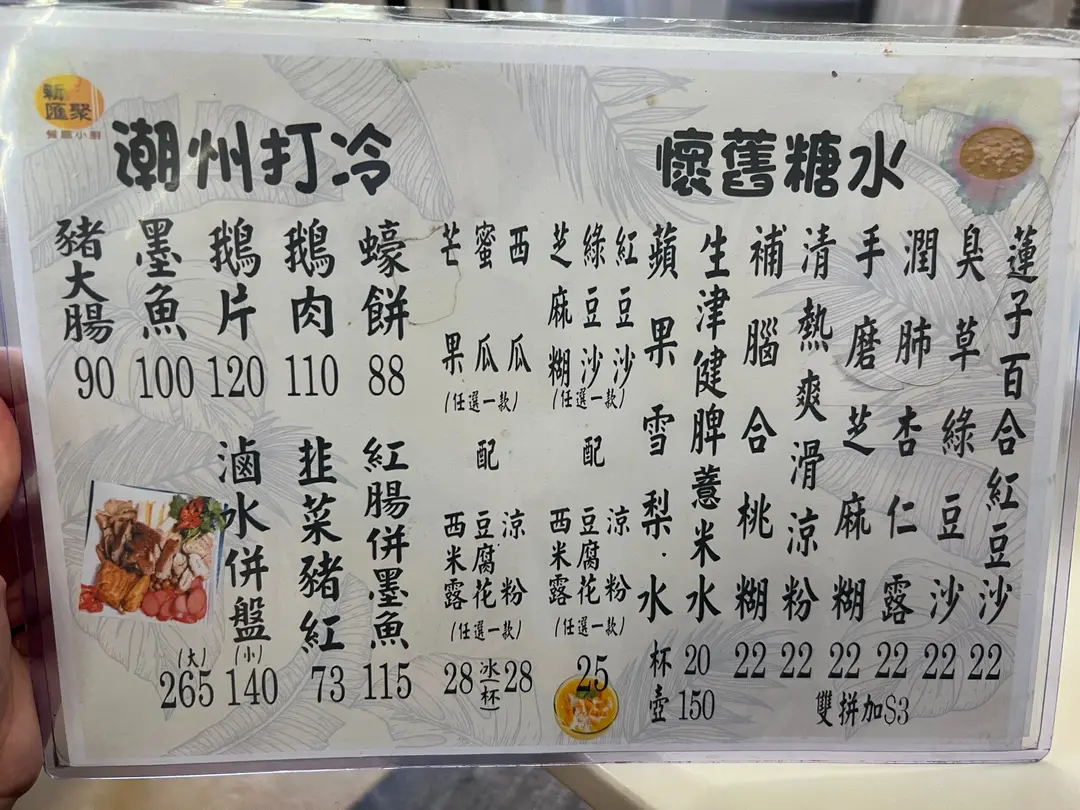 新
匯聚
餐廳小廚
潮州打冷
蠔餅 88
鵝肉 110
鵝片 120
墨魚 100
豬大腸 90
紅腸併墨魚 115
韭菜豬紅 73
滷水併盤
(小) 140
(大) 265
懷舊糖水
蓮子百合紅豆沙 22
臭草綠豆沙 22
潤肺杏仁露 22
手磨芝麻糊 22
清熱爽滑涼粉 22
補腦合桃糊 22
雙拼加$3
生津健脾薏米水
蘋果雪梨水
杯 20
壺 150
紅豆沙
綠豆沙
芝麻糊
(任選一款)
配
涼粉
豆腐花
西米露
(任選一款)
25
西瓜
蜜瓜
芒果
(任選一款)
配
涼粉
豆腐花
西米露
(任選一款)
28(冰杯)28